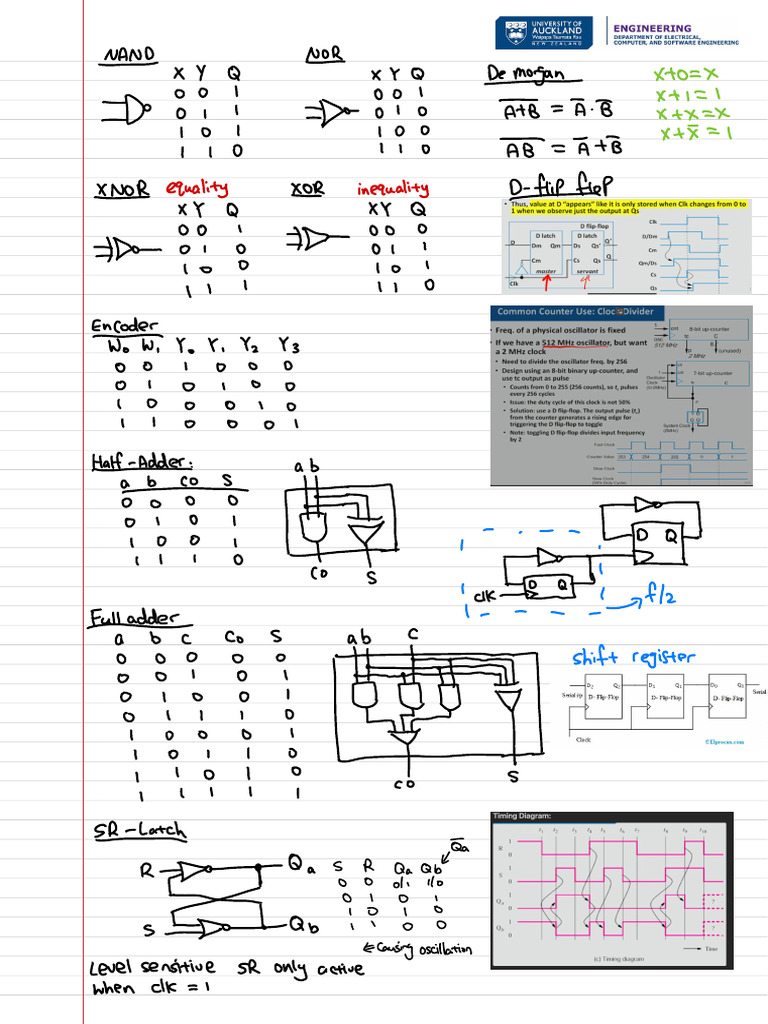 UNIVERSITY OF
AUCKLAND
Waipapa Taumata Rau
NEW ZEALAND
ENGINEERING
DEPARTMENT OF ELECTRICAL,
COMPUTER, AND SOFTWARE ENGINEERING
NAND
X Y Q
0 0 1
0 1 1
1 0 1
1 1 0
NOR
X Y Q
0 0 1
0 1 0
1 0 0
1 1 0
De morgan
A̅+̅B̅ = A̅ · B̅
A̅B̅ = A̅ + B̅
x+0=x
x+1=1
x+x=x
x+x̅=1
XNOR equality
X Y Q
0 0 1
0 1 0
1 0 0
1 1 1
XOR inequality
X Y Q
0 0 0
0 1 1
1 0 1
1 1 0
D-flip flop
• Thus, value at D “appears” like it is only stored when Clk changes from 0 to
1 when we observe just the output at Qs
D flip-flop
D latch D latch
D Dm Qm Ds Qs' Q'
Cm Cs Qs Q
master servant
Clk
Clk
D/Dm
Cm
Qm/Ds
Cs
Qs
Encoder
W₀ W₁ Y₀ Y₁ Y₂ Y₃
0 0 1 0 0 0
0 1 0 1 0 0
1 0 0 0 1 0
1 1 0 0 0 1
Common Counter Use: Clock Divider
• Freq. of a physical oscillator is fixed
• If we have a 512 MHz oscillator, but want
a 2 MHz clock
• Need to divide the oscillator freq. by 256
• Design using an 8-bit binary up-counter, and
use tc output as pulse
• Counts from 0 to 255 (256 counts), so tc pulses
every 256 cycles
• Issue: the duty cycle of this clock is not 50%
• Solution: use a D flip-flop. The output pulse (tc)
from the counter generates a rising edge for
triggering the D flip-flop to toggle
• Note: toggling D flip-flop divides input frequency
by 2
1 cnt 8-bit up-counter
512 MHz
tc C
8
2 MHz (unused)
7-bit up-counter
Oscillator
Clock
System Clock
Fast Clock
Counter Value 253 254 255 0 1
Slow Clock
Slow Clock
Half-Adder:
a b co s
0 0 0 0
0 1 0 1
1 0 0 1
1 1 1 0
a b
co s
D Q
D Q
clk
f/2
Full adder
a b c Co S
0 0 0 0 0
0 0 1 0 1
0 1 0 0 1
0 1 1 1 0
1 0 0 0 1
1 0 1 1 0
1 1 0 1 0
1 1 1 1 1
a b c
co s
shift register
D₂ Q₂ D₁ Q₁ D₀ Q₀
Serial i/p D- Flip-Flop D- Flip-Flop D- Flip-Flop Serial
Clock
©Elprocus.com
SR-Latch
R Qa
S Qb
Q̅a
S R Qa Qb
0 0 0/1 1/0
0 1 0 1
1 0 1 0
1 1 0 0
← Causing oscillation
Level sensitive SR only active
when clk = 1
Timing Diagram:
t1 t2 t3 t4 t5 t6 t7 t8 t9 t10
R 1
0
S 1
0
Qa 1
0 ?
Qb 1
0 ?
Time
(c) Timing diagram